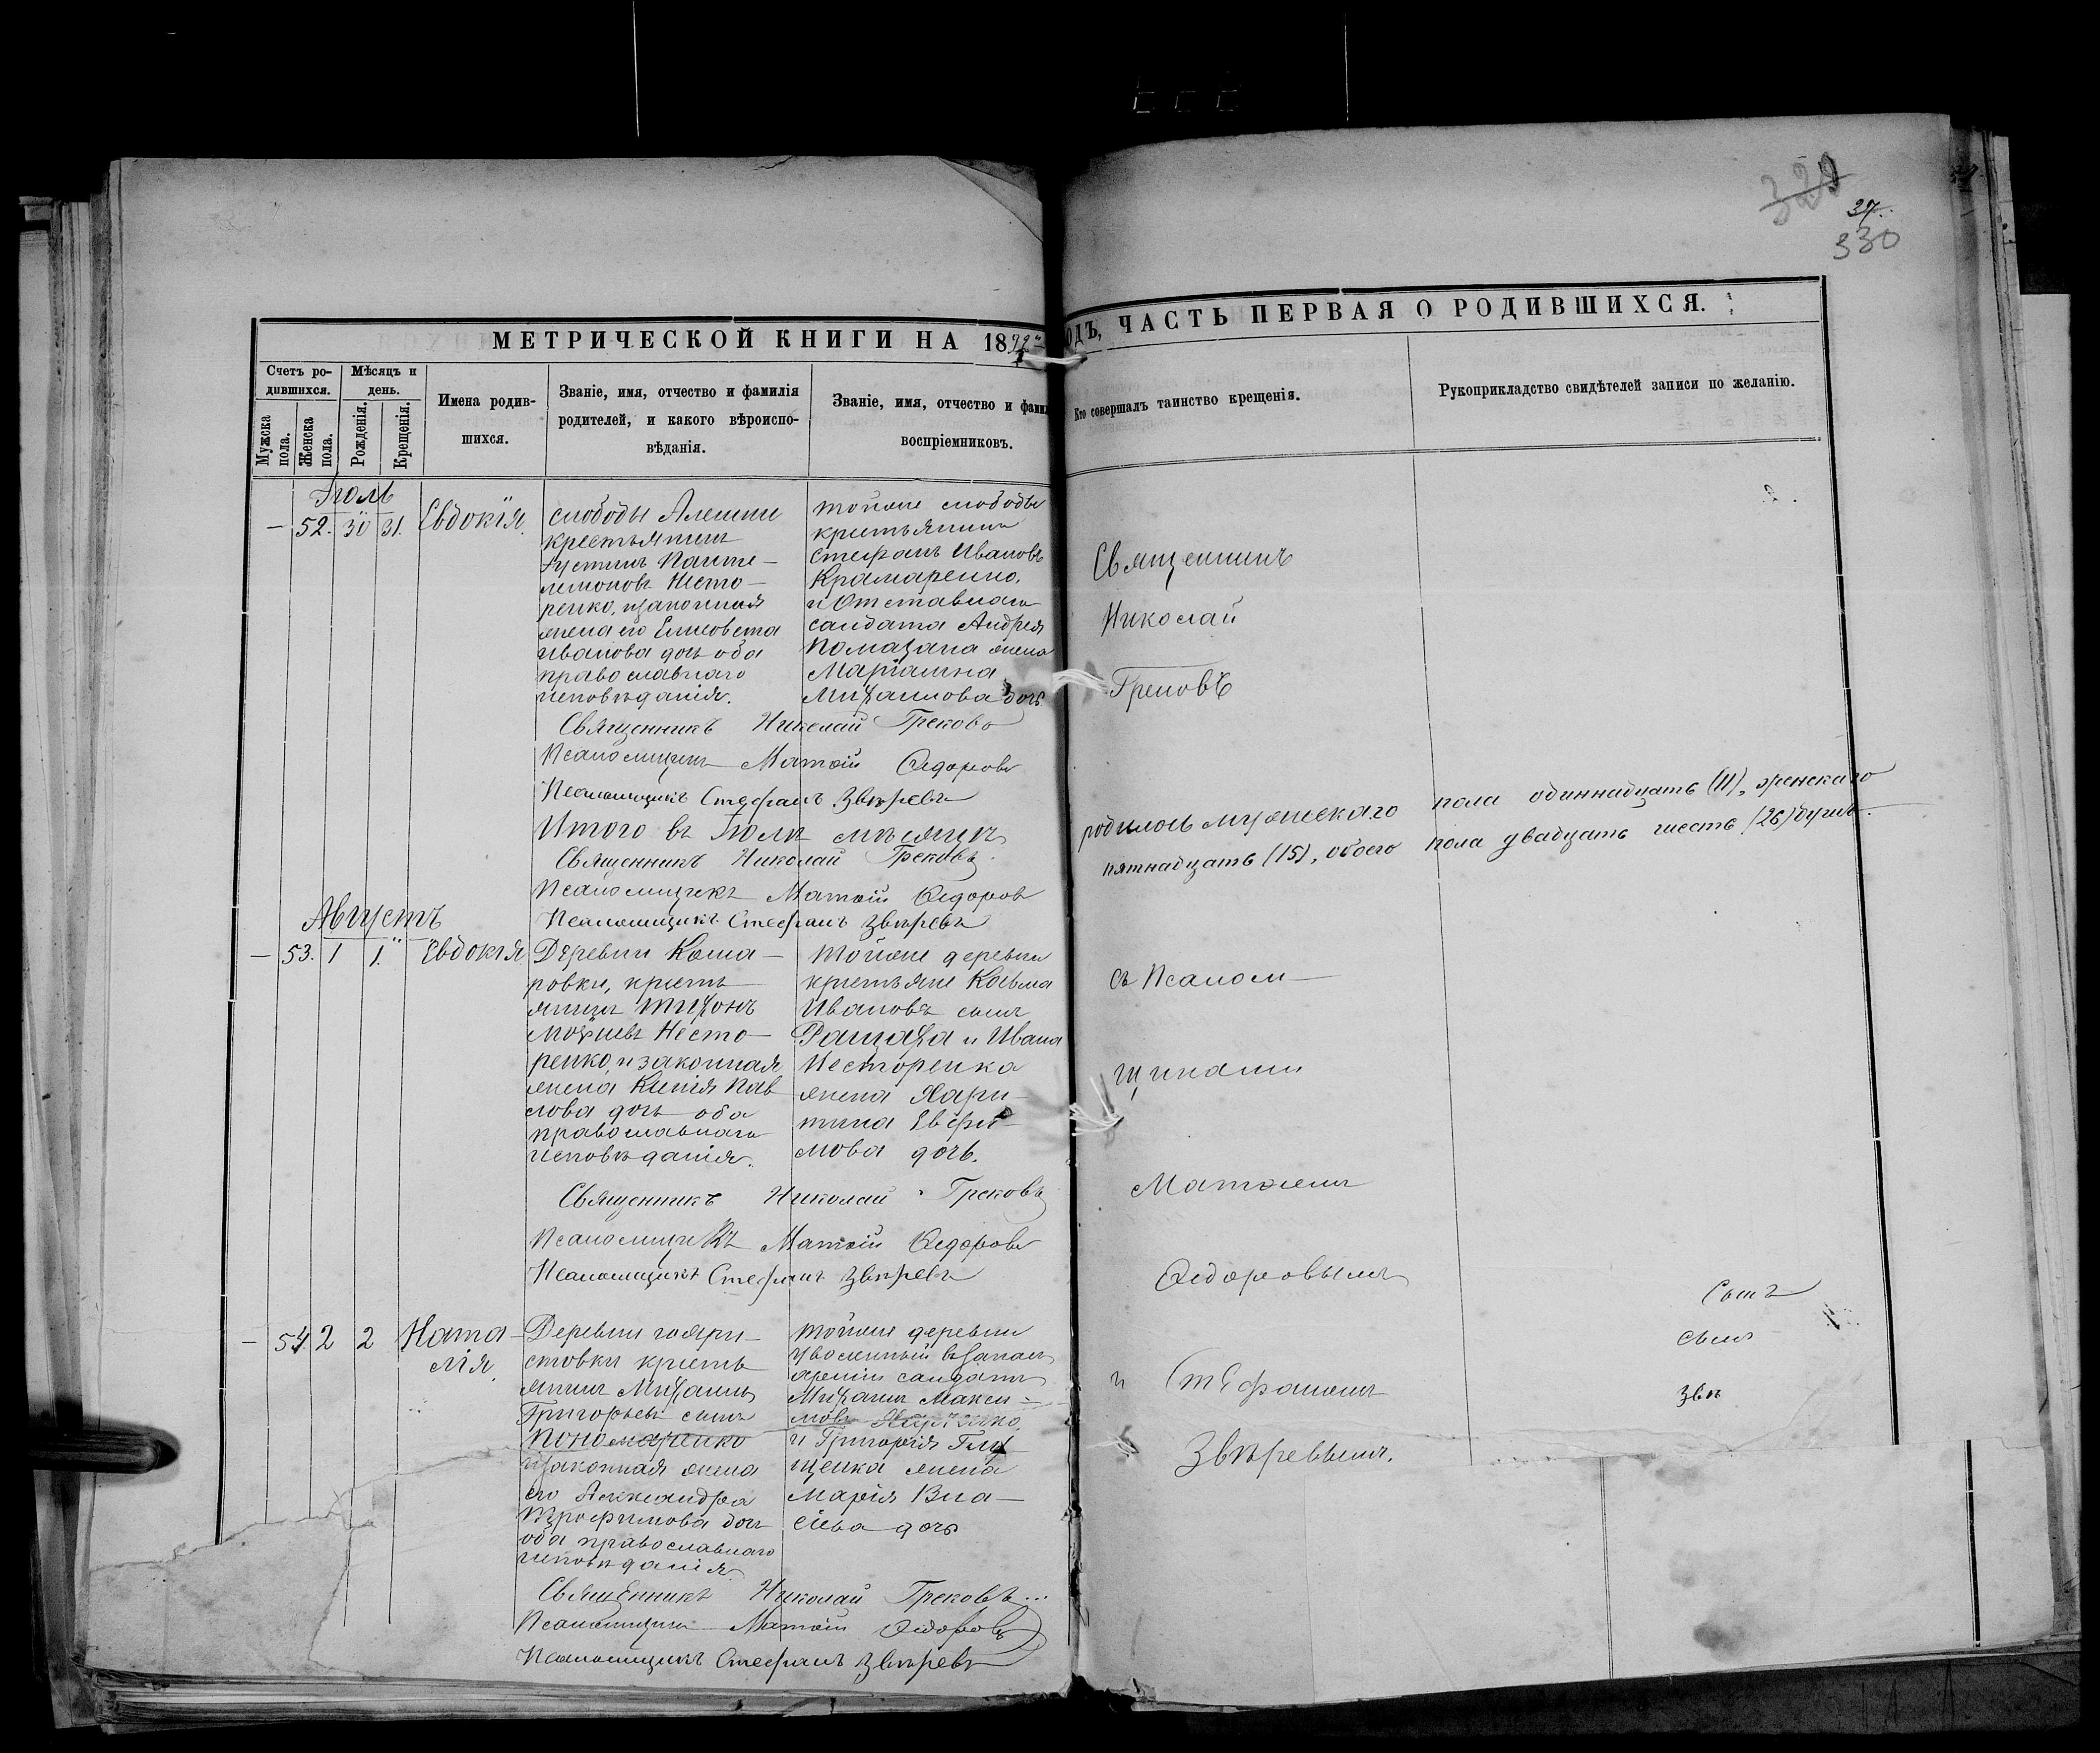 329
37.
330
МЕТРИЧЕСКОЙ КНИГИ НА 1892
ОДЪ, ЧАСТЬ ПЕРВАЯ О РОДИВШИХСЯ.
Счетъ ро-
дившихся.
Мужска
пола.
Женска
пола.
Мѣсяцъ и
день.
Рожденія.
Крещенія.
Имена родив-
шихся.
Званіе, имя, отчество и фамилія
родителей, и какого вѣроиспо-
вѣданія.
Званіе, имя, отчество и фамил
воспріемниковъ.
Кто совершалъ таинство крещенія.
Рукоприкладство свидѣтелей записи по желанію.
Іюль
— 52. 30 31. Евдокія.
слободы Алешки
крестьянинъ
Іустинъ Панте-
лимоновъ Несто-
ренко, изаконная
жена его Елисавета
Иванова дочь оба
православнаго
исповѣданія.
тойже слободы
крестьянинъ
Стефанъ Ивановъ
Крамаренко,
и Отставнаго
солдата Андрея
Помазана жена
Маріанна
Михаилова дочь
Священникъ
Николай
Грековъ
Священникъ Николай Грековъ
Псаломщикъ Матѳій Ѳедоровъ
Псаломщикъ Стефанъ Звѣревъ
Итого въ Іюлѣ мѣсяцѣ
родилось мужескаго пола одиннадцать (11), женскаго
пятнадцать (15), обоего пола двадцать шесть (26) душъ.
Священникъ Николай Грековъ.
Псаломщикъ Матѳій Ѳедоровъ
Псаломщикъ Стефанъ Звѣревъ
Августъ
— 53. 1 1. Евдокія
Деревни Коша-
ровки, кресть-
янинъ Тихонъ
Моѵсіевъ Несто-
ренко, и законная
жена Ксенія Пав
лова дочь оба
православнаго
исповѣданія.
тойже деревни
крестьяне Косьма
Ивановъ сынъ
и Ивана
Несторенка
жена Хари-
тина Евфи-
мова дочь.
съ Псалом-
щиками
Матѳіемъ
Ѳедоровымъ
и Стефаномъ
Звѣревымъ.
Священникъ Николай Грековъ
Псаломщикъ Матѳій Ѳедоровъ
Псаломщикъ Стефанъ Звѣревъ
— 54. 2 2 Ната-
лія.
Деревни
стовки кресть
янинъ Михаилъ
Григорьевъ сынъ
Пономаренко
изаконная жена
его Александра
Трофимова дочь
оба православнаго
исповѣданія
тойже деревни
уволенный въ запасъ
арміи солдатъ
Михаилъ Макси-
мовъ
и Григорія Глу
щенка жена
Марія Вла-
сіева дочь
Сынъ
сынъ
Звѣ
Священникъ Николай Грековъ...
Псаломщикъ Матѳій Ѳедоровъ
Псаломщикъ Стефанъ Звѣревъ